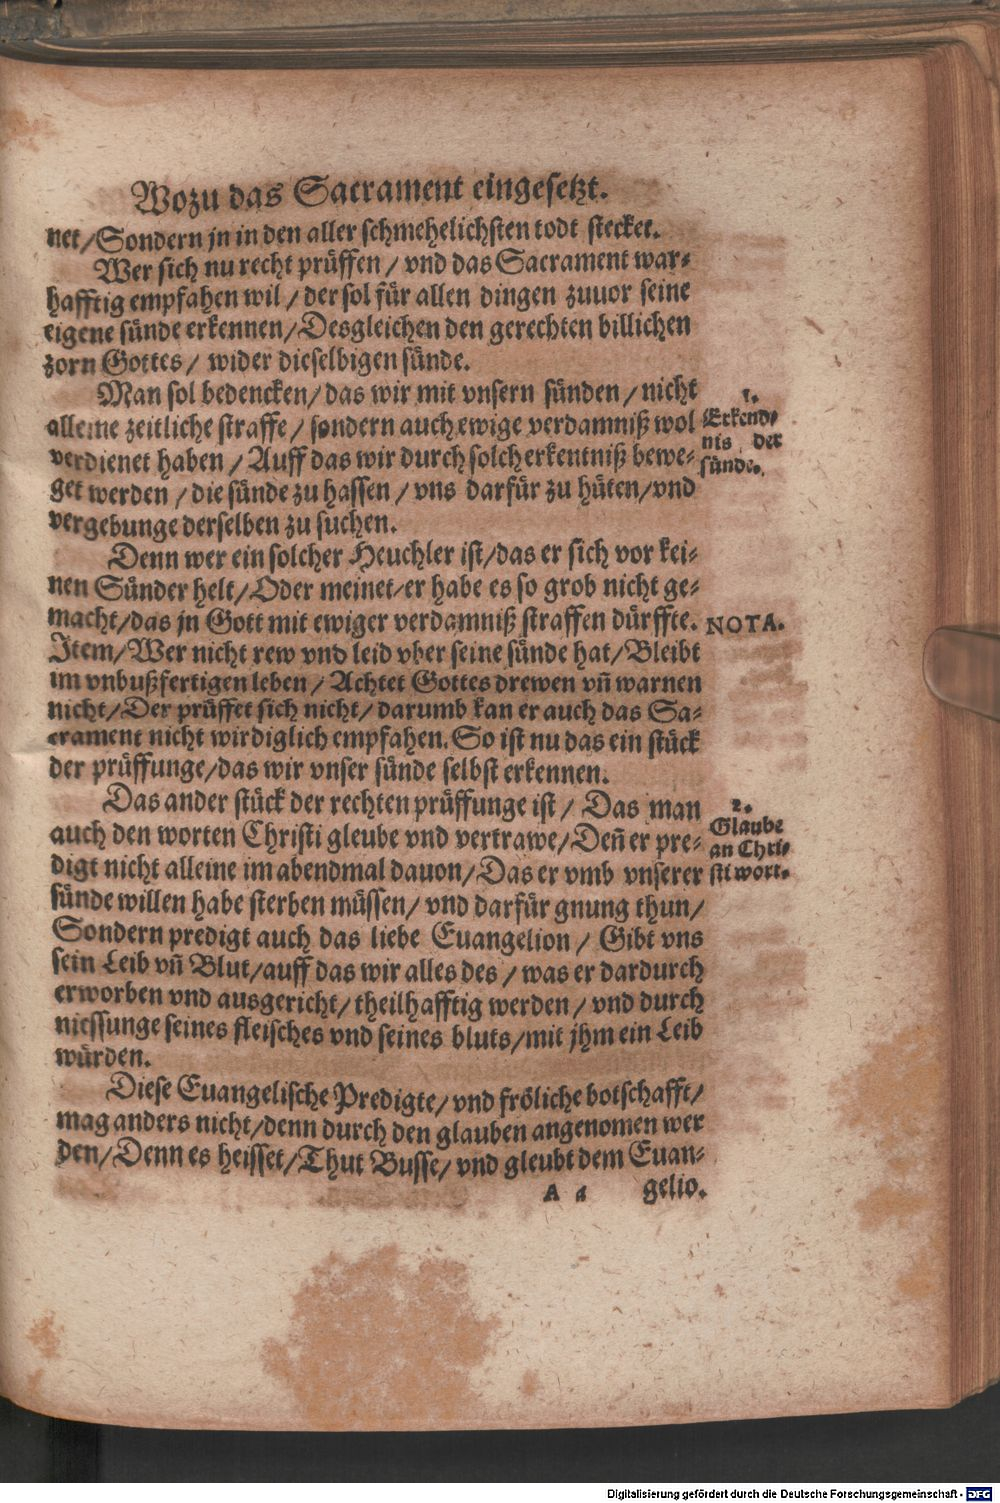 Wozu das Sacrament eingesetzt.
net/Sondern jn in den aller schmehelichsten todt stecket.
Wer sich nu recht prüffen / vnd das Sacrament war-
hafftig empfahen wil / der sol für allen dingen zuuor seine
eigene sünde erkennen/Desgleichen den gerechten billichen
zorn Gottes / wider dieselbigen sünde.
Man sol bedencken/das wir mit vnsern sünden / nicht
alleine zeitliche straffe / sondern auch ewige verdamniß wol
verdienet haben / Auff das wir durch solch erkentniß bewe-
get werden / die sünde zu hassen / vns darfür zu hüten/vnd
vergebunge derselben zu suchen.
1.
Erkend-
nis der
sünde.
Denn wer ein solcher Heuchler ist/das er sich vor kei-
nen Sünder helt/Oder meinet/er habe es so grob nicht ge-
macht/das jn Gott mit ewiger verdamniß straffen dürffte.
Item/Wer nicht rew vnd leid vber seine sünde hat/Bleibt
im vnbußfertigen leben / Achtet Gottes drewen vñ warnen
nicht/Der prüffet sich nicht/darumb kan er auch das Sa-
crament nicht wirdiglich empfahen. So ist nu das ein stück
der prüffunge/das wir vnser sünde selbst erkennen.
NOTA.
Das ander stück der rechten prüffunge ist / Das man
auch den worten Christi gleube vnd vertrawe/Deñ er pre-
digt nicht alleine im abendmal dauon/Das er vmb vnserer
sünde willen habe sterben müssen/ vnd darfür gnung thun/
Sondern predigt auch das liebe Euangelion / Gibt vns
sein Leib vñ Blut/auff das wir alles des / was er dardurch
erworben vnd ausgericht/theilhafftig werden / vnd durch
niessunge seines fleisches vnd seines bluts/mit jhm ein Leib
würden.
2.
Glaube
an Chri-
sti wort.
Diese Euangelische Predigte/vnd fröliche botschafft/
mag anders nicht/denn durch den glauben angenomen wer
den/Denn es heisset/Thut Busse/vnd gleubt dem Euan-
A a gelio.
Digitalisierung gefördert durch die Deutsche Forschungsgemeinschaft - DFG